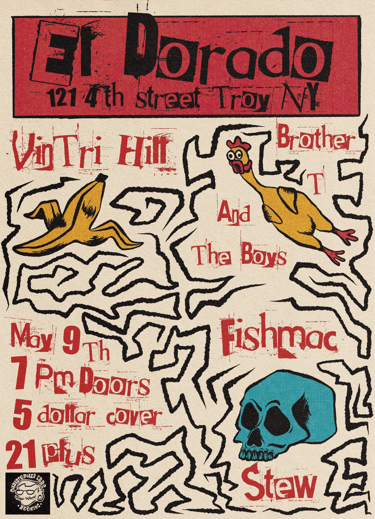 El Dorado
121 4th street Troy NY
VinTri Hill
Brother
T
And
The Boys
May 9Th
7 Pm Doors
5 dollar cover
21 plus
Fishmac
Stew